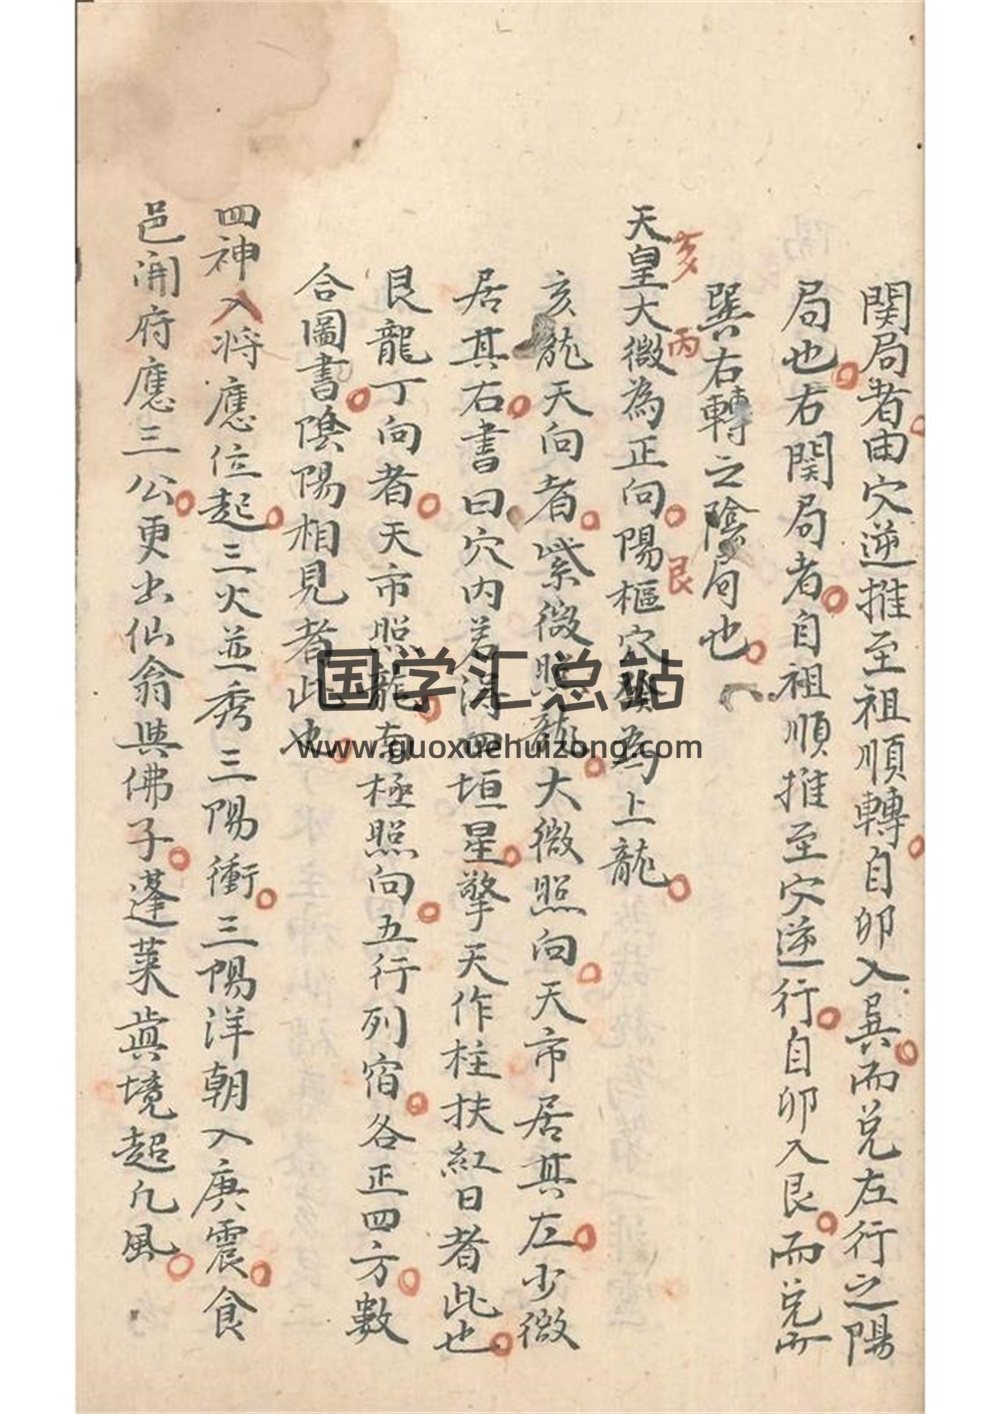 関局者由穴逆推至祖順轉自卯入巽而兌左行之陽
局也右関局者自祖順推至穴逆行自卯入艮而兌而
巽右轉之陰局也
天皇大微為正向陽樞穴為上龍
亥
丙
艮
亥龍天向者紫微照龍大微照向天市居其左少微
居其右書曰穴内若得四垣星擎天作柱扶紅日者此也
艮龍丁向者天市照龍南極照向五行列宿各正四方數
合圖書陰陽相見者此也
四神入将應位起三火並秀三陽衝三陽洋朝入庚震食
邑開府應三公更出仙翁與佛子蓬萊真境超凡風
国学汇总站
www.guoxuehuizong.com